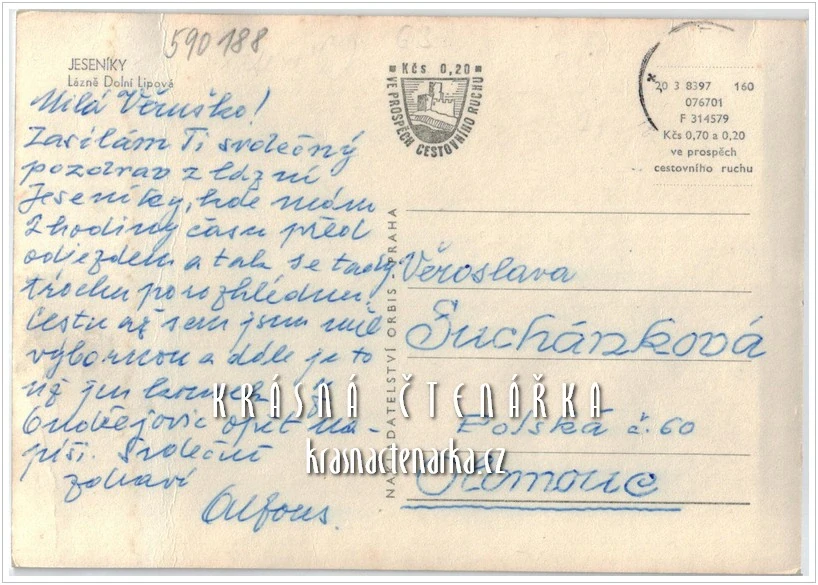 590188
JESENÍKY
Lázně Dolní Lipová
Milá Věruško!
Zasílám Ti srdečný
pozdrav z lázní
Jeseníky, kde mám
2 hodiny času před
odjezdem a tak se tady
trochu porozhlédnu.
Cestu až sem jsem měl
výbornou a dále je to
už jen kousek. Z
Ondřejovic opět na-
píši. Srdečně
zdraví
Alfons.
Kčs 0,20
VE PROSPĚCH CESTOVNÍHO RUCHU
20 3 8397 160
076701
F 314579
Kčs 0,70 a 0,20
ve prospěch
cestovního ruchu
NAKLADATELSTVÍ ORBIS PRAHA
Věroslava
Suchánková
Polská č. 60
Olomouc
KRÁSNÁ ČTENÁŘKA
krasnactenarka.cz